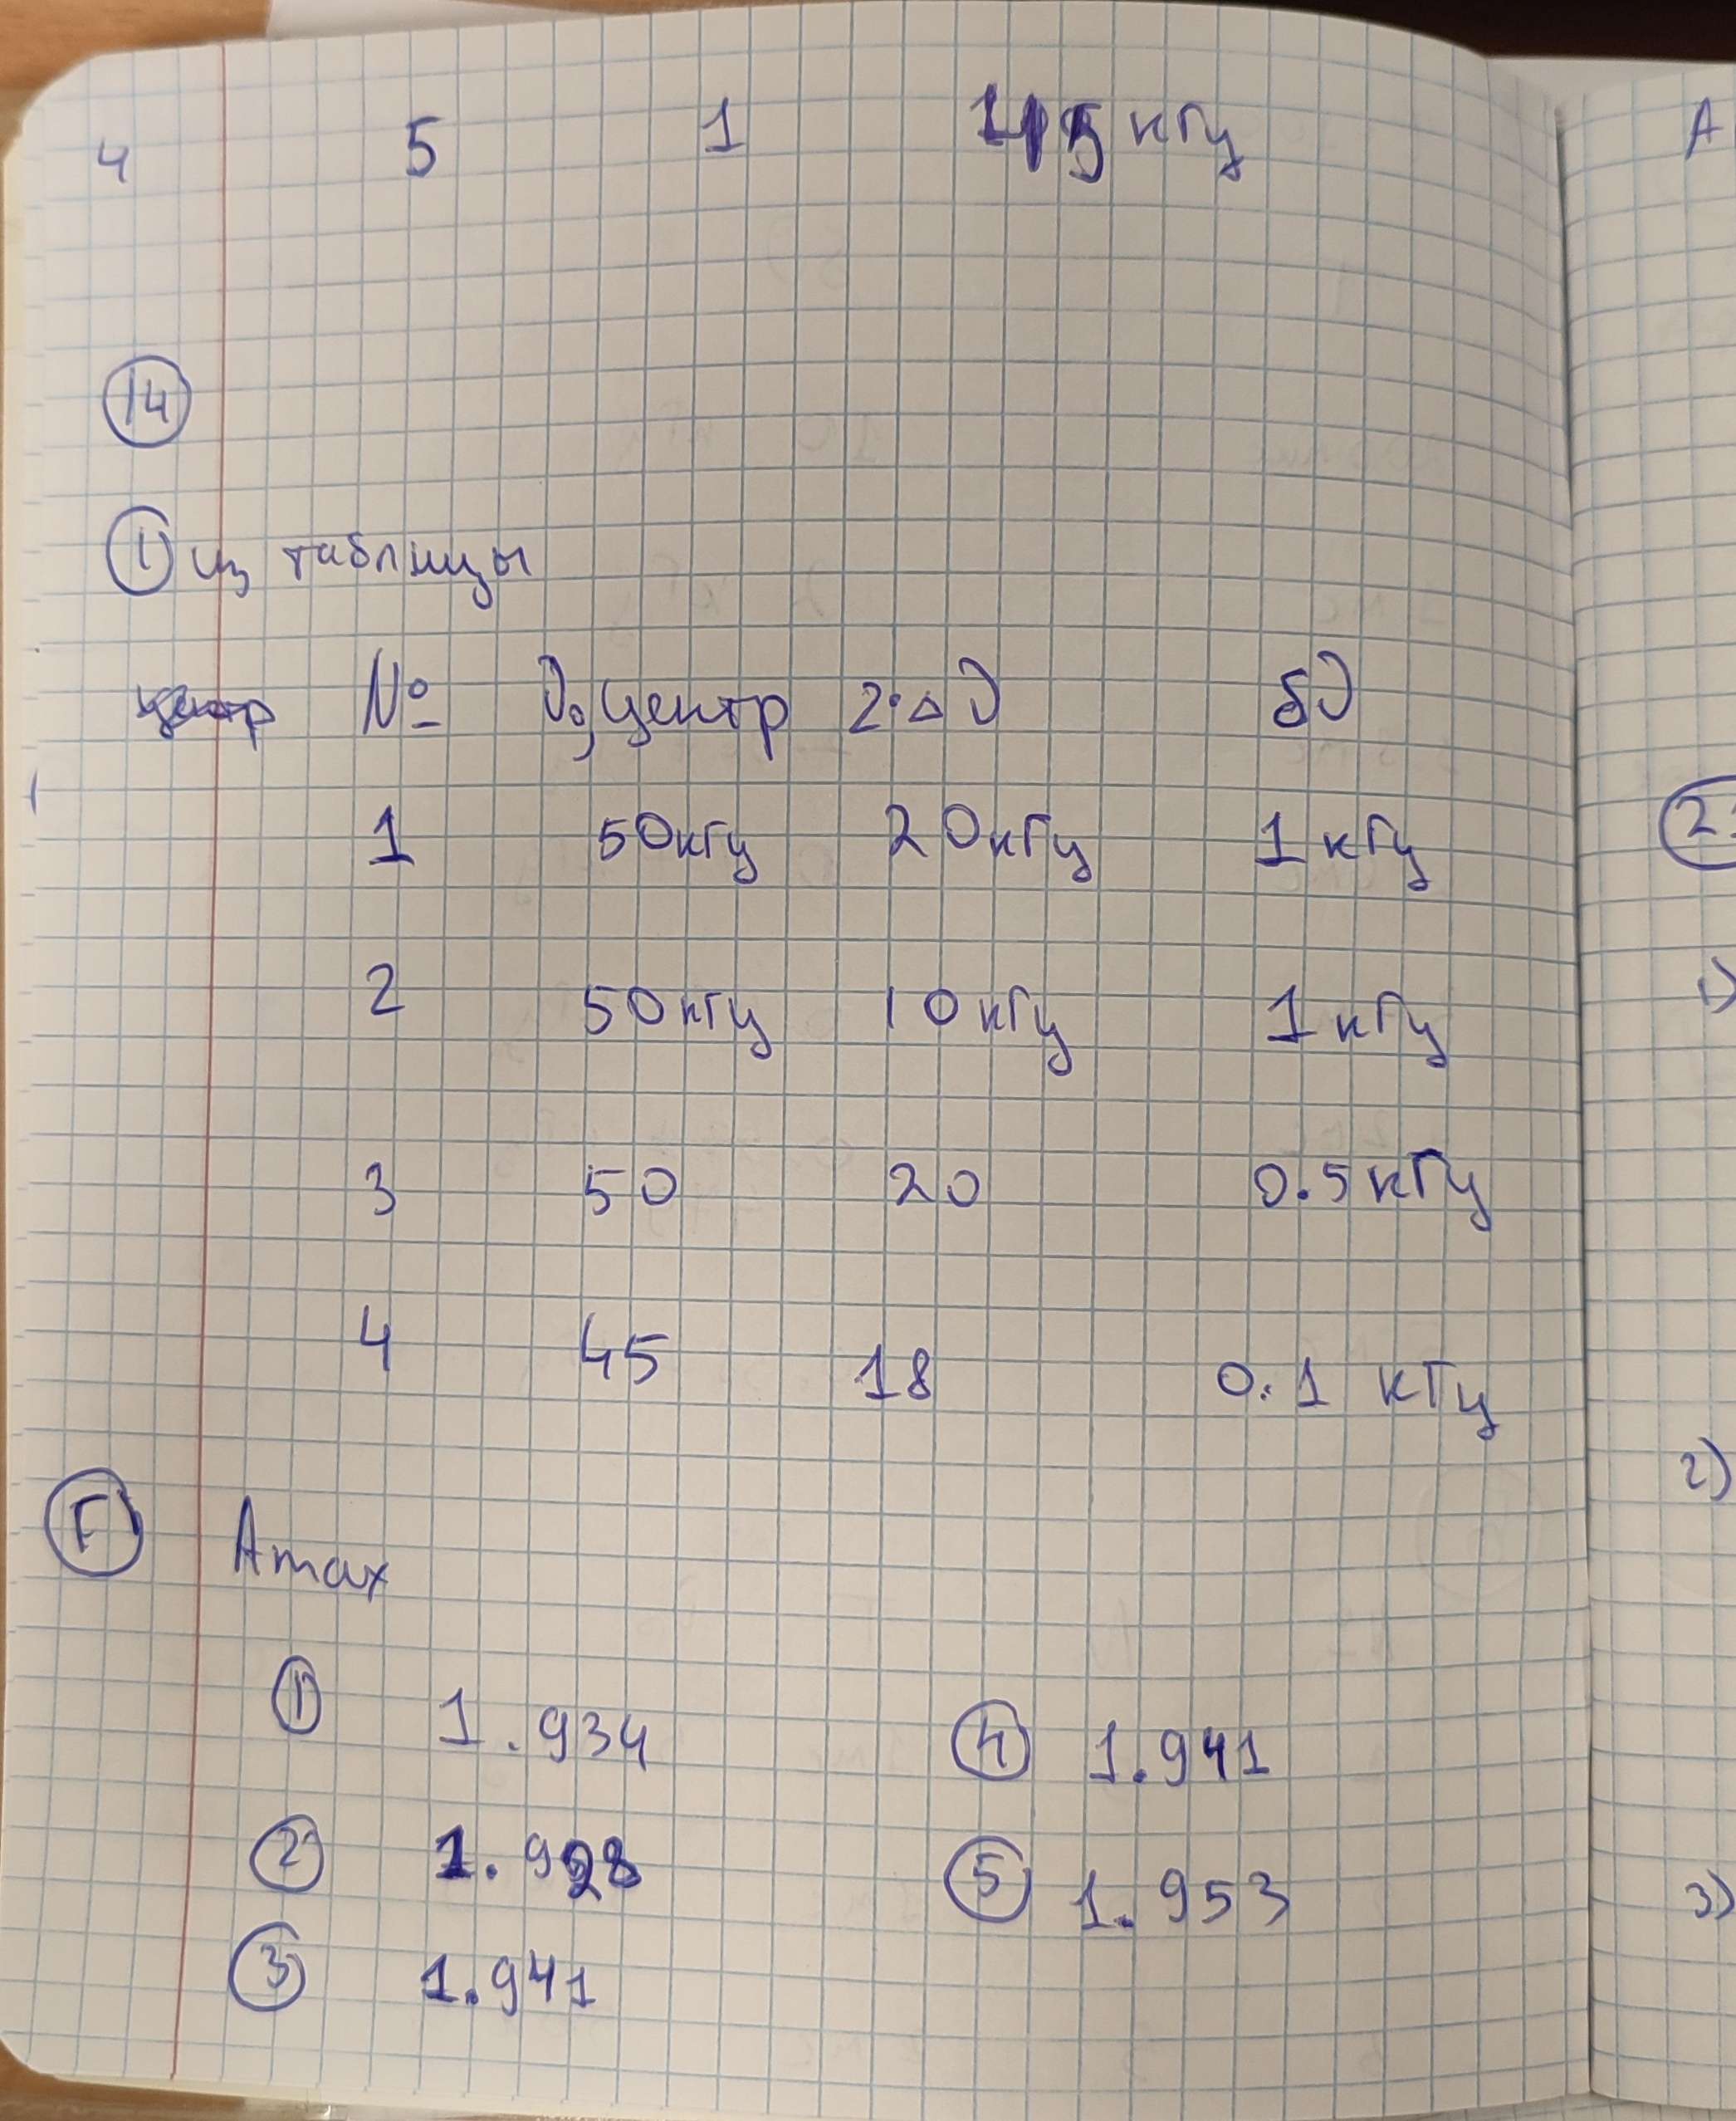 4 5 1 45 кГц
14
1 из таблицы
центр № ν₀, центр 2·Δν δν
1 50кГц 20кГц 1 кГц
2 50кГц 10 кГц 1 кГц
3 50 20 0.5 кГц
4 45 18 0.1 кГц
Г Amax
1 1.934 4 1.941
2 1.928 5 1.953
3 1.941
A
2.
1)
2)
3)